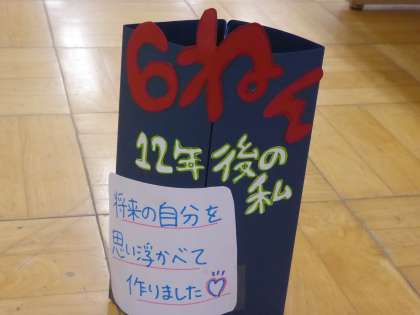 6ねん
12年後の
私
将来の自分を
思い浮かべて
作りました♡